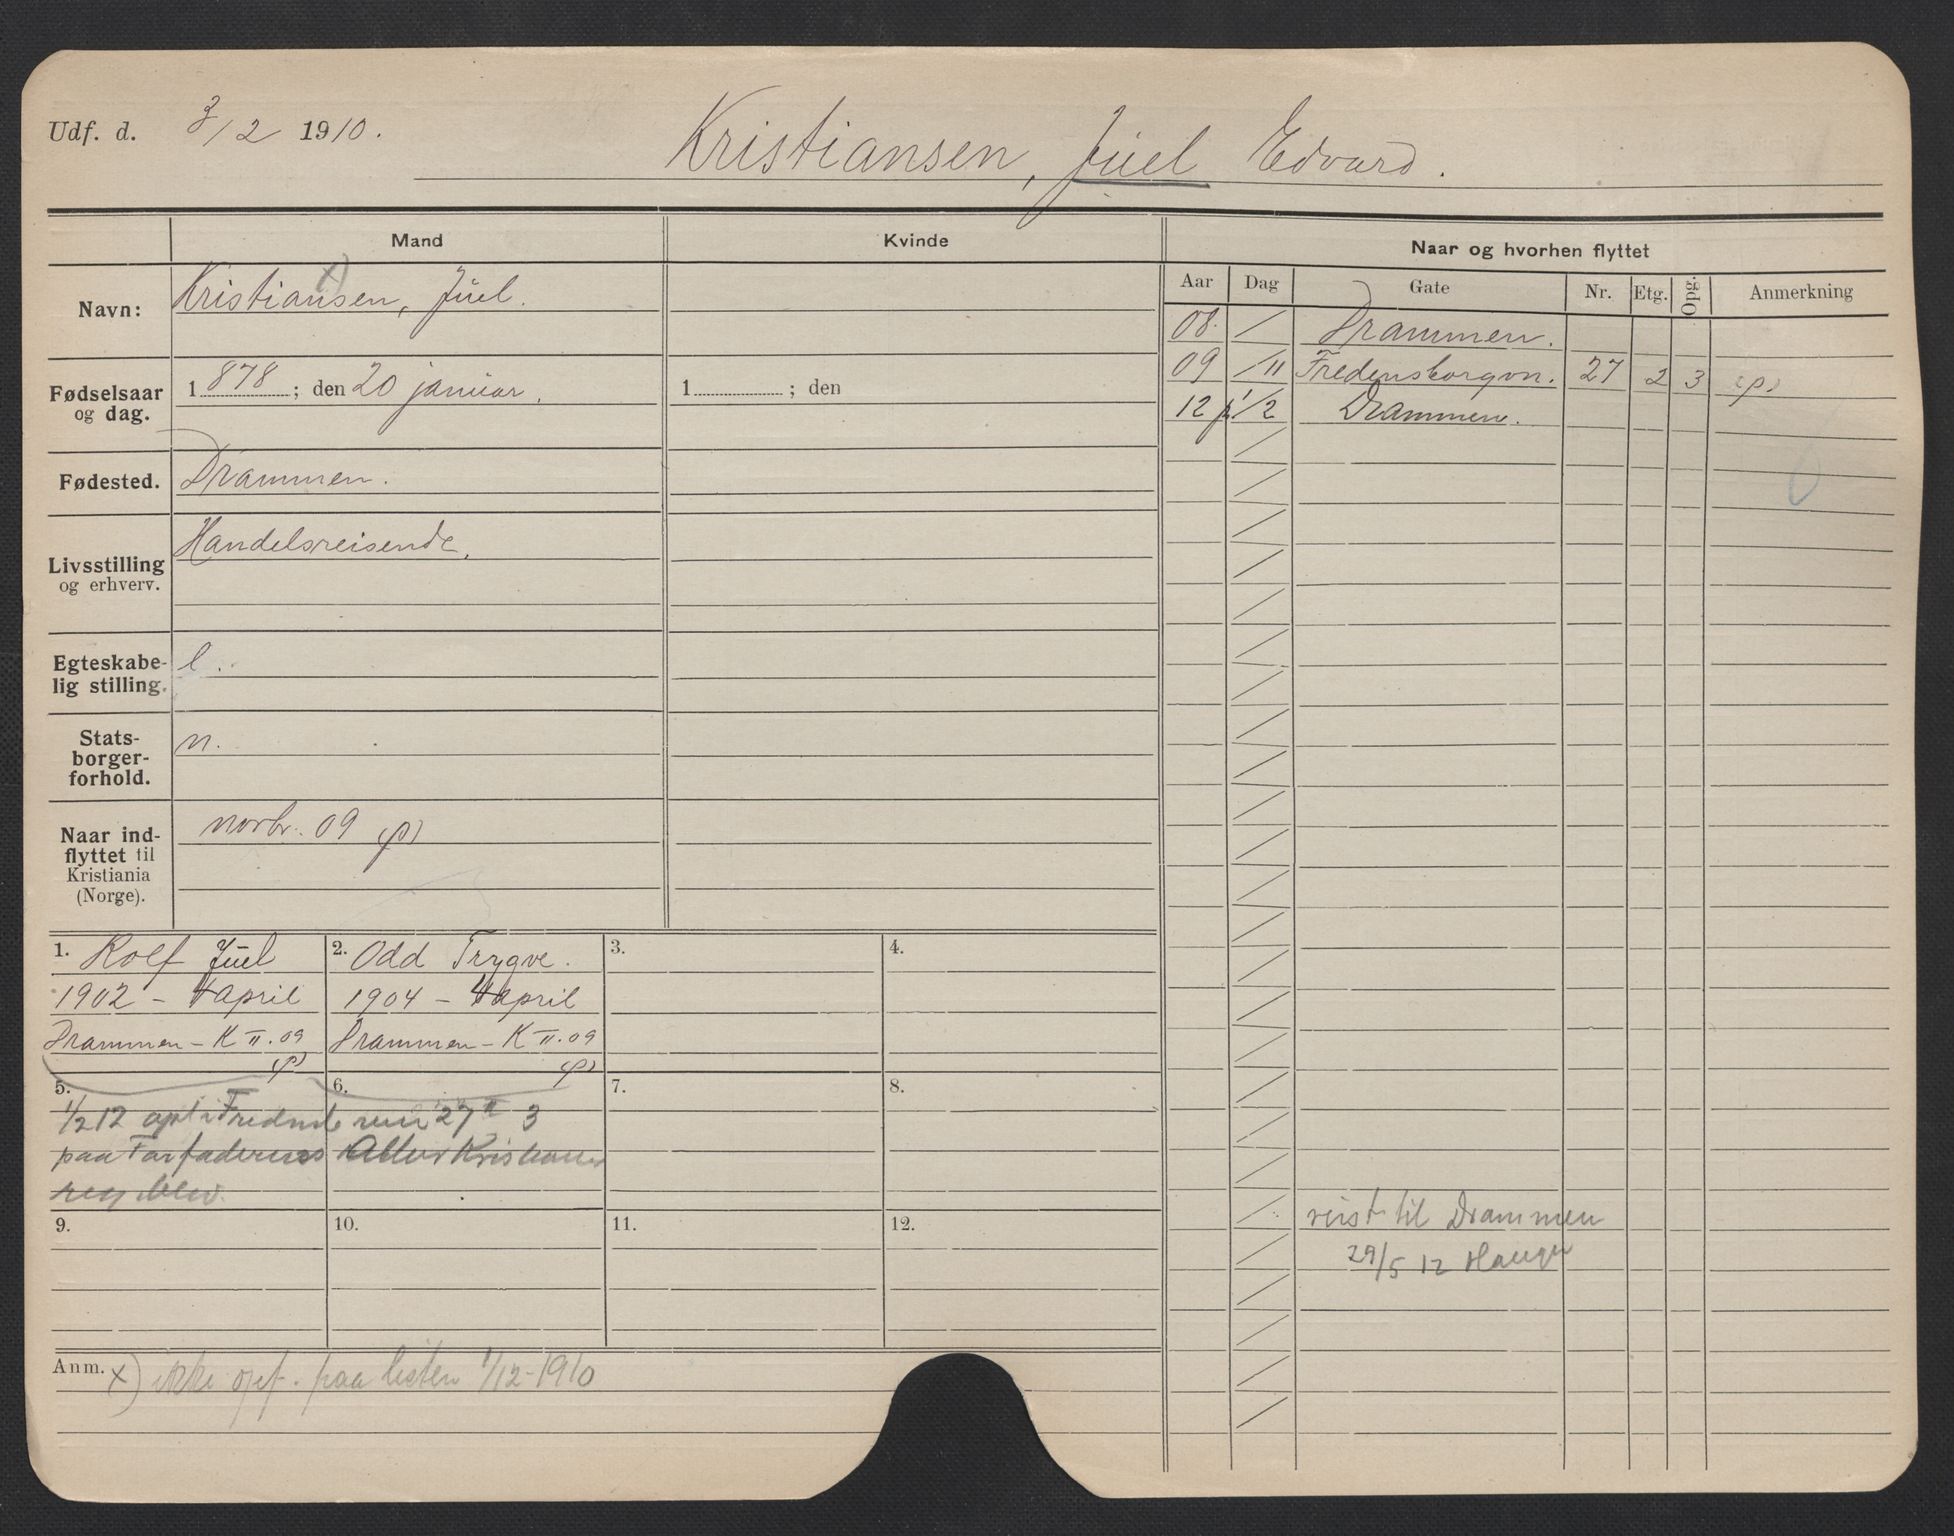 Udf. d. 3/2 1910.
Kristiansen, Juel Edvard.
Mand
Kvinde
Naar og hvorhen flyttet
Aar Dag Gate Nr. Etg. Opg. Anmerkning
Navn: Kristiansen, Juel. x)
Fødselsaar og dag. 1878; den 20 januar. 1 ; den
Fødested. Drammen.
Livsstilling og erhverv. Handelsreisende.
Egteskabe-
lig stilling. e.
Stats-
borger-
forhold. n.
Naar ind-
flyttet til
Kristiania
(Norge). novbr. 09 (p)
08. / Drammen.
09 /11 Fredensborgvn. 27 2 3 (p)
12 1/2 Drammen.
1. Rolf Juel
1902 - 4 april
Drammen - K II. 09
(p)
2. Odd Trygve.
1904 - 4 april
Drammen - K II. 09
(p)
3.
4.
5.
6.
7.
8.
1/2 12 opl i 27 II 3
paa Farfaderens
reg. blev.
9.
10.
11.
12.
reist til Drammen
29/5 12
Anm. x) ikke opf. paa listen 1/12-1910